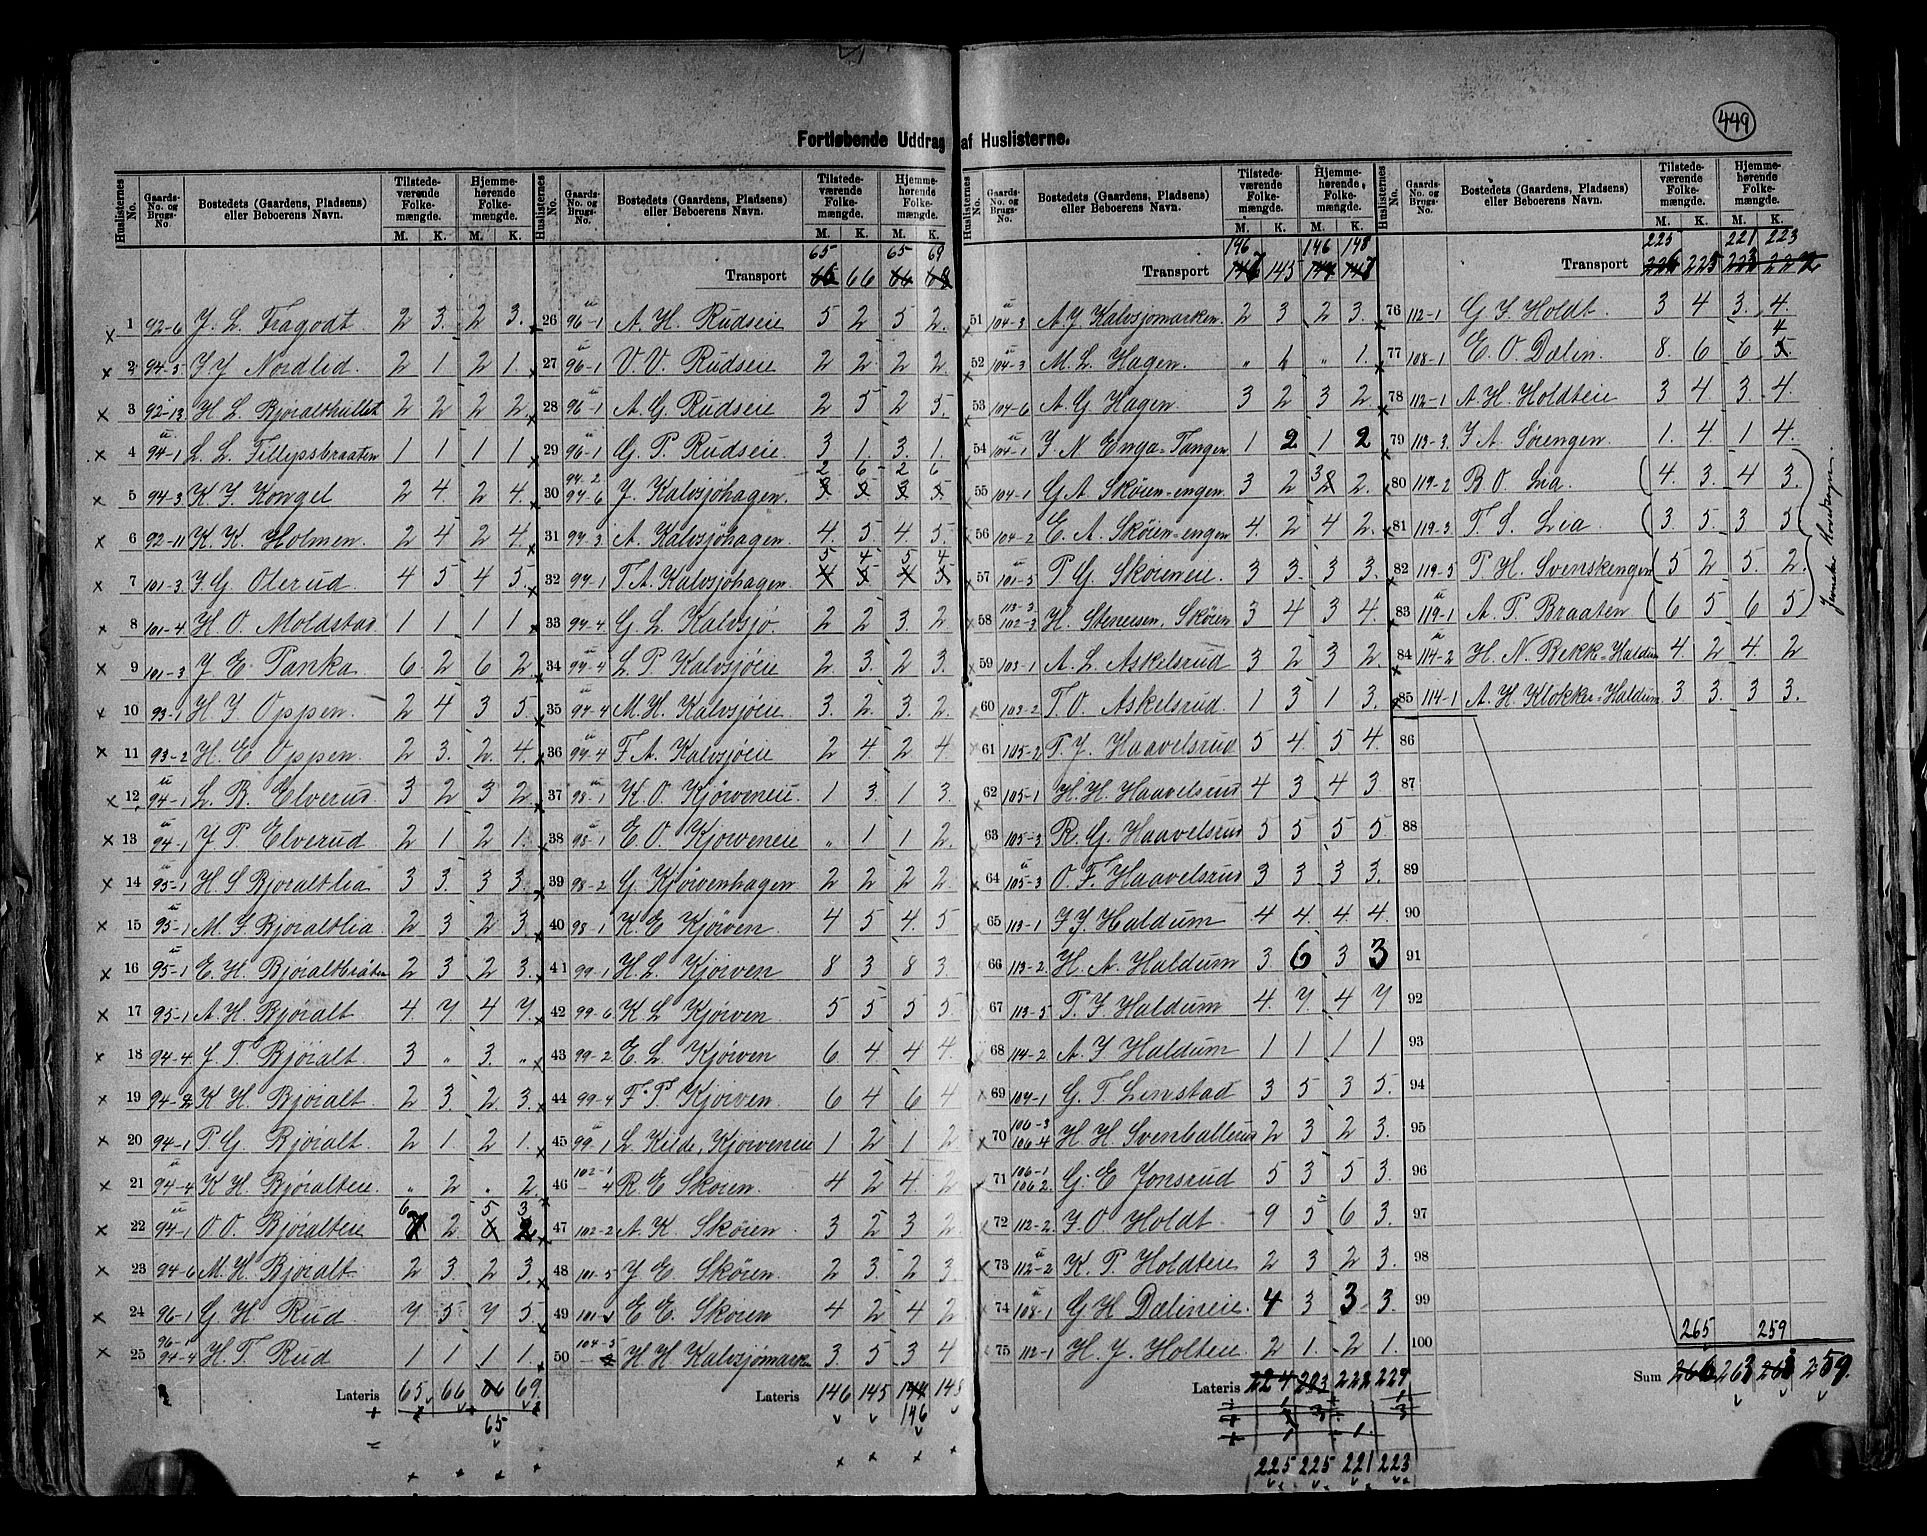 449
Fortløbende Uddrag af Huslisterne.
Huslisternes No. | Gaards-No. og Brugs-No. | Bostedets (Gaardens, Pladsens) eller Beboerens Navn. | Tilstedeværende Folkemængde. M. K. | Hjemmehørende Folkemængde. M. K.
1 92-6 J. L. Fragodt 2 3. 2 3.
2 94-5 J J Nordlid 2 1 2 1.
3 92-13 H. L. Björalthullet 2 2 2 2.
4 94-1 L. L. Fillipsbraaten 1 1 1 1
5 94-3 K. J. Kongel 2 4. 2 4.
6 92-11 K. K. Holmen 2 4 2 4.
7 101-3 J. G. Oterud 4 5 4 5.
8 101-4 H. O. Moldstad 1 1 1 1
9 101-3 J E Tanka 6. 2 6 2.
10 93-1 H J Oppen 2 4 3 5.
11 93-2 H. E Oppen 2 3. 2. 4.
12 94-1 L. B. Elverud 3 2 3 2
13 94-1 J P Elverud 2 1 2 1.
14 95-1 H S Björaltlia 3 3. 3 3.
15 95-1 M. J Björaltlia 2 3 2 3.
16 95-1 E. H. Björaltbråten 2 3 2 3.
17 95-1 A. H. Björalt 4. 7. 4 7.
18 94-4 J T Björalt. 3 „ 3. „
19 94-2 K H. Björalt. 2 3. 2. 3.
20 94-1 P G. Björalt. 2 1. 2 1.
21 94-4 K H. Björalteie. „ 2 „ 2.
22 94-1 O O. Björalteie 6 2 5 3
23 94-6 M. H. Björalt 2 3. 2 3.
24 96-1 G. H. Rud 7 5 7 5.
25 96-1 94-4 H. T. Rud 1 1 1 1.
Lateris 65 66 66 69.
65
Transport 65 66 65 69
26 96-1 A. H. Rudseie 5 2 5 2.
27 96-1 O. O. Rudseie 2 2 2 2
28 96-1 A. G. Rudseie 2 5 2 5.
29 96-1 G. P. Rudseie 3 1. 3. 1.
30 94-2 97-6 J. Kalvsjöhagen. 2 6 2 6
31 97-3 A. Kalvsjöhagen. 4. 5. 4. 5.
32 97-1 T. A. Kalvsjöhagen 5 4 5 4
33 97-4 G. L. Kalvsjö. 2 2 3. 2
34 97-4 L. P. Kalvsjöeie 2. 3. 2 3.
35 97-4 M. H. Kalvsjöeie 3. 2. 3. 2.
36 97-4 F A. Kalvsjöeie 2 4. 2 4.
37 98-1 K. O. Kjörveneie. 1 3. 1 3.
38 98-1 E. O. Kjörveneie „ 1 1 2.
39 98-2 G. Kjörvenhagen 2 2 2 2.
40 98-1 K. E Kjörven 4 5 4. 5
41 99-1 H. L Kjörven 8 3 8 3
42 99-6 K L Kjörven 5 5 5 5.
43 99-2 E. L. Kjörven 6 4 4 4.
44 99-4 F. P. Kjörven 6 4 6 4
45 99-1 L. Kilde, Kjörveneie 1 2 1 2
46 102-1 -4 R E Skoren. 4 2 4. 2
47 102-2 A. K Sköien 3 2 3 2
48 101-5 J E. Sköien 2 3. 2 3.
49 E E. Sköien 4 2 4 2
50 104-5 H H Kalvsjömarken 3 5 3 4
Lateris 146 145 144 148
146
Transport 146 145 146 148
51 104-3 A J Kalvsjomarken 2 3 2 3.
52 104-3 M. L. Hagen. „ 1 „ 1.
53 104-6 A. G. Hagen. 3 2 3 2.
54 104-1 J. N Enga-Tangen 1 2 1 2
55 104-1 G A. Sköien-engen 3 2 3 2.
56 104-2 E. A. Sköien-engen 4. 2 4 2.
57 101-5 P G. Sköieneie. 3 3. 3 3.
58 113-3. 102-3 H. Steneisen, Sköien 3 4 3 4.
59 103-1 A. L. Askelsrud 3 2 3 2
60 103-2 T. O. Askelsrud. 1 3 1 3.
61 105-2 P. J. Haavelsrud 5 4. 5 4.
62 105-1 H. H. Haavelsrud 4 3 4 3
63 105-3 R. G. Haavelsrud 5 5 5 5
64 105-3 O. F. Haavelsrud 3 3 3 3.
65 113-1 J J Haldum 4 4. 4. 4.
66 113-2. H. A. Haldum 3 6 3 3
67 113-5 P. J Haldum 4. 7. 4 7
68 114-2 A. J Haldum 1 1 1 1
69 107-1 G. T. Linstad 3 5 3 5.
70 106-3 106-4 H. H Svenballerud 2 3 2 3.
71 106-1 106 2. G. E Jonsrud 5 3 5 3.
72 112-2. J. O Holdt. 9 5 6 3.
73 112-2 K. P. Holdteie 2 3 2 3.
74 108-1 G H Dælineie. 4 3 3 3.
75 112-1 H. J. Holteie. 2 1. 2 1.
Lateris 224 223 222 229
225 225 221 223
Transport 225 225 221 223
76 112-1 G J. Holdt. 3 4 3. 4.
77 108-1 E. O. Dælin. 8. 6 6 4
78 112-1 A H. Holdteie 3 4. 3. 4.
79 113-3. J A. Sörengen. 1. 4. 1 4.
80 119-2 B O. Lia. 4. 3. 4 3.
81 119-3 T. S. Lia. 3 5. 3 5
82 119-5 P H. Svenskengen 5 2 5. 2.
83 119-1 A. P. Braaten 6 5 6 5
84 114-2 H. N. Bekk-Haldum 4. 2 4. 2
85 114-1 A. H. Klokker-Haldum. 3 3. 3 3.
86
87
88
89
90
91
92
93
94
95
96
97
98
99
100
265 259
Sum 266 263 263 259.